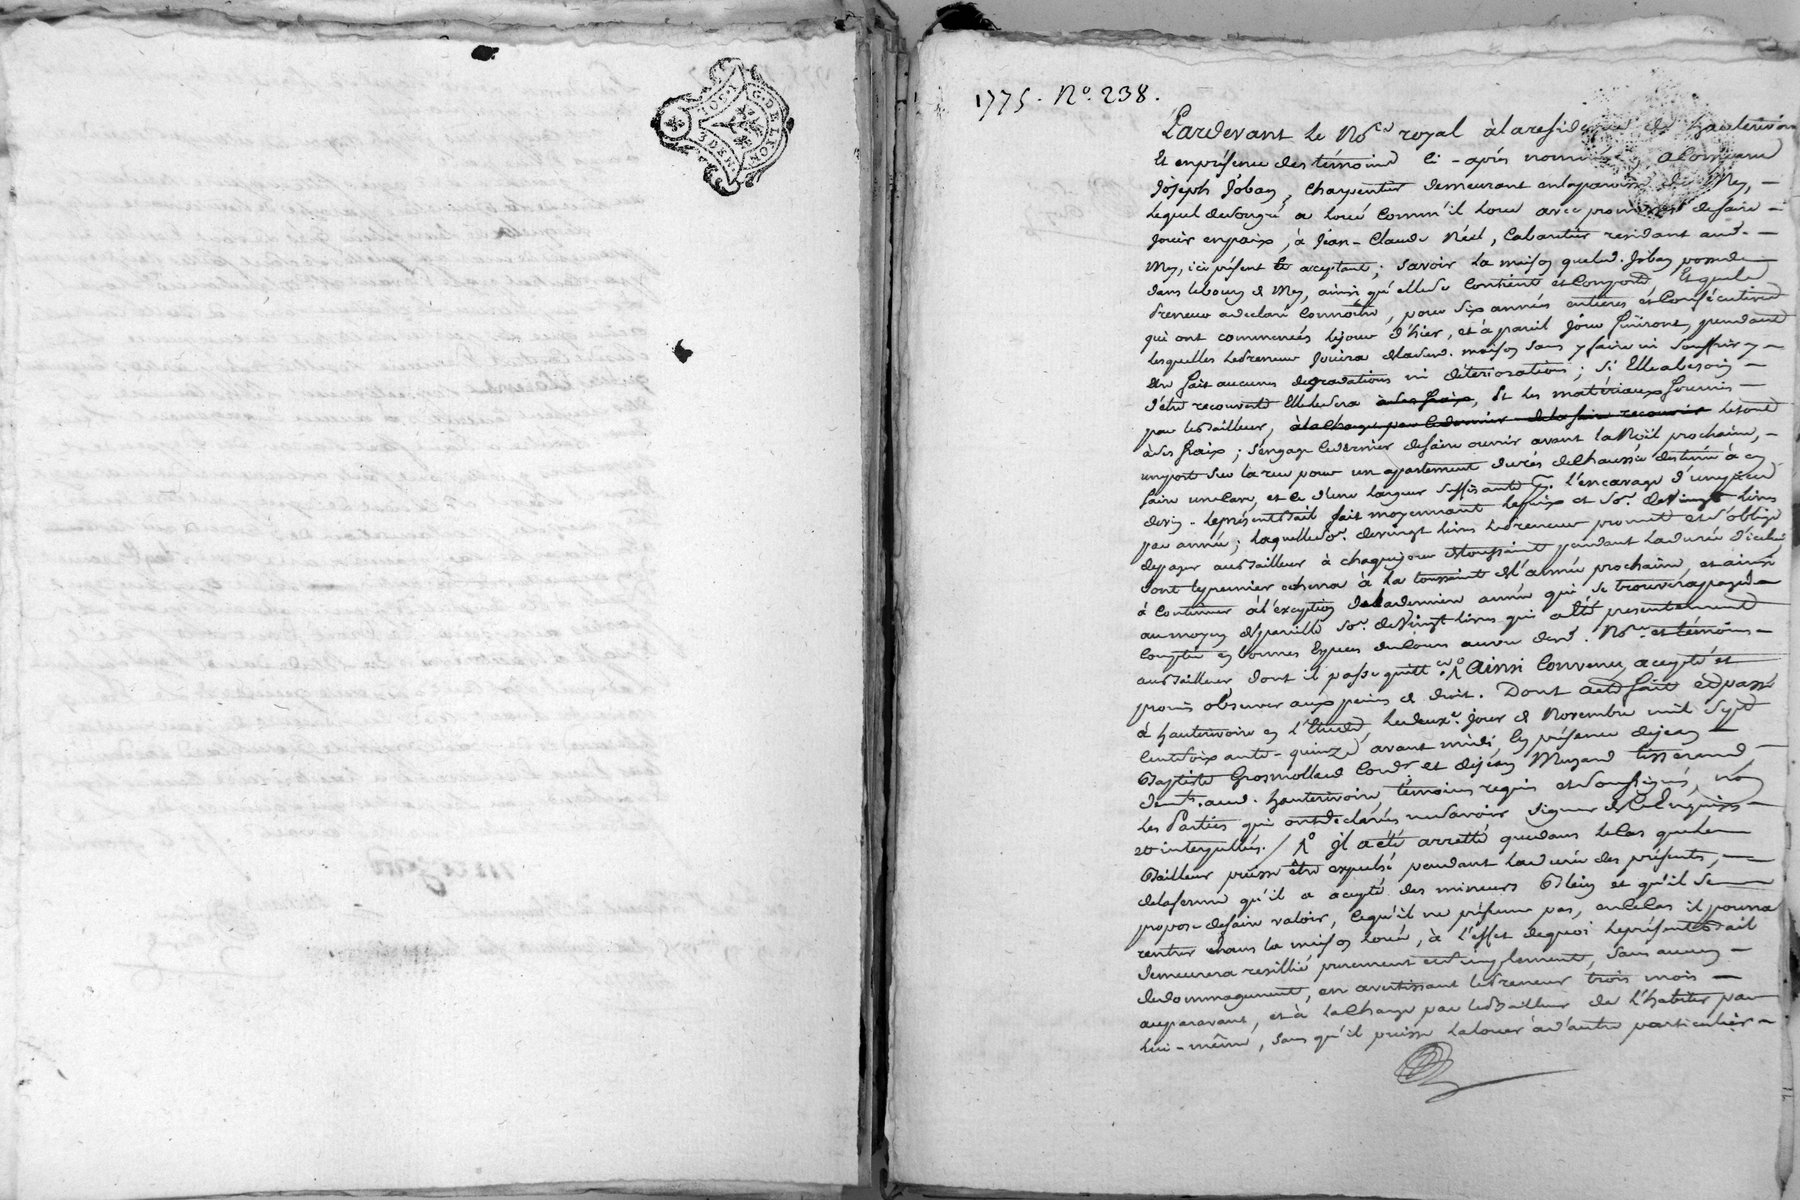 G. DE LYON
3 DEN
1775. N.° 238.
Pardevant le No.re royal à la residence de hauterivoire
Et en présence des témoins ci-après nommés, a comparu
Joseph Joban, charpentier demeurant en la paroisse de Mey,
lequel de son gré a loué comm'il loue avec promesses de faire
jouir en paix, à Jean-Claude Néel, Cabaretier residant aud.
Mey, ici présent & aceptant; Savoir la maison que led. Joban possede
dans le bourg de Mey, ainsi qu'elle se Contient et Comporte Et que le
Preneur a declaré Connoitre, pour Six années entieres et Consécutives
qui ont commencés le jour d'hier, et à pareil jour finiront, pendant
lesquelles le Preneur Jouira de lad. maison sans y faire ni souffrir y
être fait aucunes degradations ni déteriorations; Si Elle a besoin
d'être recouverte Elle le sera à ses fraix, Et les matériaux fournis
par le Bailleur, à la charge par ce dernier de la faire recouvrir le tout
à ses fraix; s'engage ce dernier de faire ouvrir avant la Noël prochaine,
une porte sur la rue pour un apartement du rés de chaussée destiné à en
faire une Cave, et ce d'une largeur suffisante p.r l'encavage d'une piece
de vin. le présent Bail fait moyennant le prix et So.e de vingt livres
par année; laquelle So.e de vingt livres le Preneur promet et s'oblige
de payer au Bailleur à chaque jour de toussaint pendant la durée d'icelui,
dont le premier echerra à la toussaint de l'année prochaine, et ainsi
à Continuer à l'exception de la derniere année qui se trouvera payée
au moyen de pareille So.e de Vingt livres qui a été presentement
Comptée en bonnes Especes du Cours au vu desd. No.re et témoins
au Bailleur dont il passe quitt.ce Ainsi Convenu, acepté et
promis observer aux peines de droit. Dont acte fait et passé
à hauterivoire en l'Etude, le deux.e jour de Novembre mil Sept
Cent Soixante-quinze avant midi, En présence de jean
Baptiste Grosmollard Cord.r et de jean Muzard tisserand,
dem.ts aud. hauterivoire témoins requis et Soussignés, non
les Parties qui ont déclarés ne Savoir Signer de Ce Enquises
et interpellés. / il a été arretté que dans le Cas que le
Bailleur puisse être expulsé pendant la durée des présentes,
de la ferme qu'il a acepté des mineurs Blein et qu'il se
propose de faire valoir, Ce qu'il ne présume pas, en ce Cas il pourra
rentrer dans la maison louée, à l'effet de quoi le présent Bail
demeurera resillié purement et simplement, Sans aucun
dedommagement, en avertissant le Preneur trois mois
auparavant, et à la Charge par le Bailleur de l'habiter par
lui-même, Sans qu'il puisse la louer à d'autre particulier